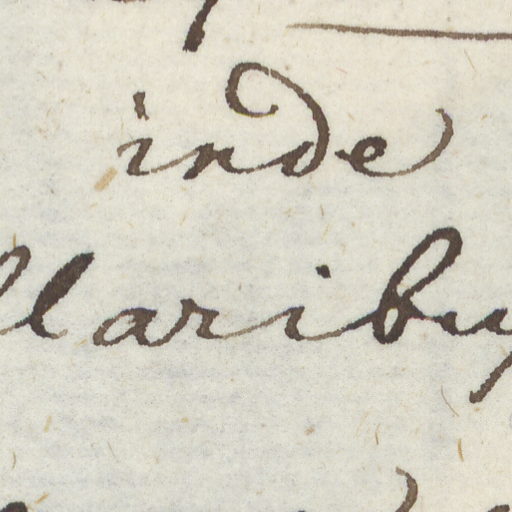 inde
llaribus